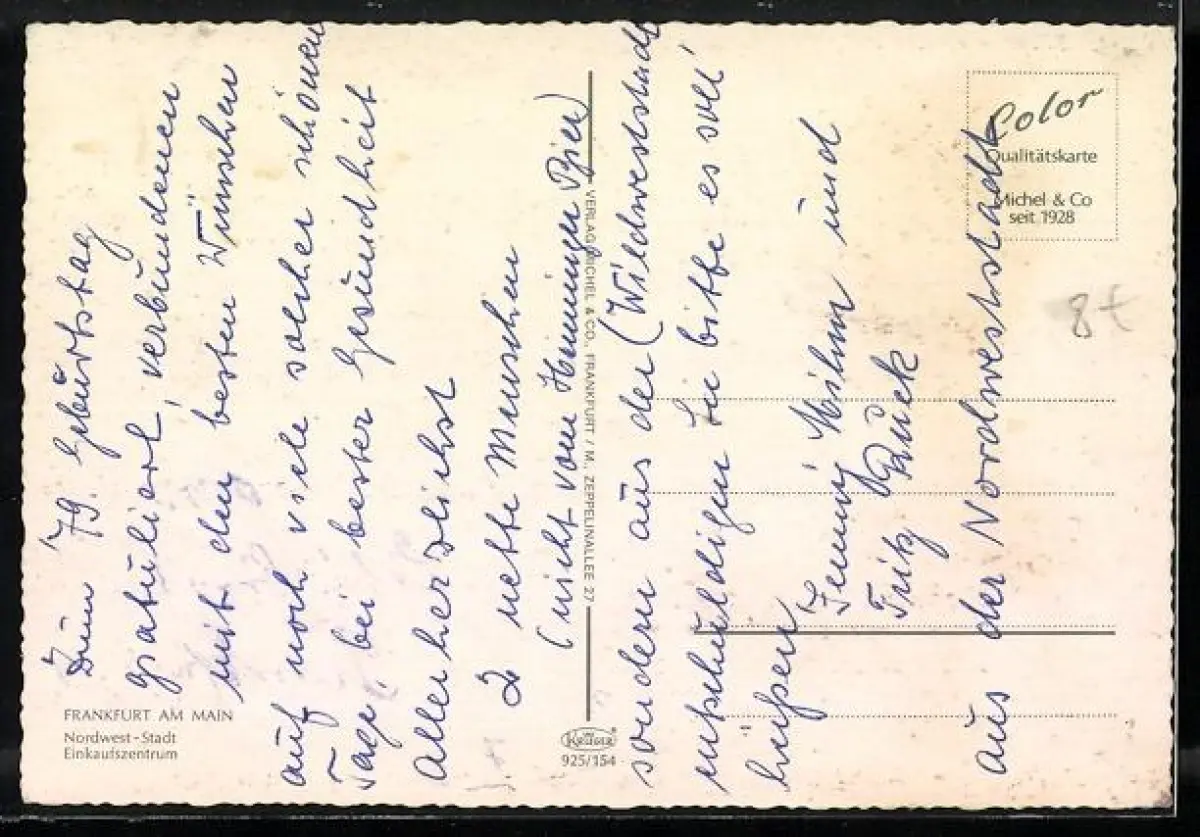 Zum 79. Geburtstag
gratuliert, verbunden
mit den besten Wünschen
auf noch viele solcher schönen
Tage, bei bester Gesundheit
Allerherzlichst
2 nette Menschen
(nicht vom Henninger Bier)
sondern aus der (Wildweststadt
entschuldigen Sie bitte es soll
heißen)
Jenny Böhm und
Fritz Rück
aus der Nordweststadt
FRANKFURT AM MAIN
Nordwest-Stadt
Einkaufszentrum
VERLAG MICHEL & CO., FRANKFURT / M., ZEPPELINALLEE 27
KRÜGER
925/154
Color
Qualitätskarte
Michel & Co
seit 1928